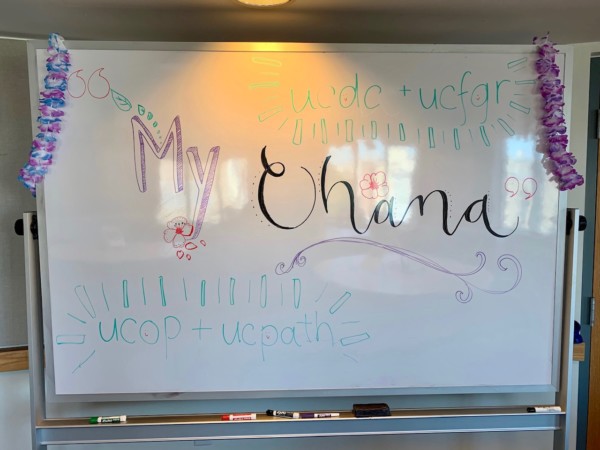 ucdc + ucfgr
“My Ohana”
ucop + ucpath